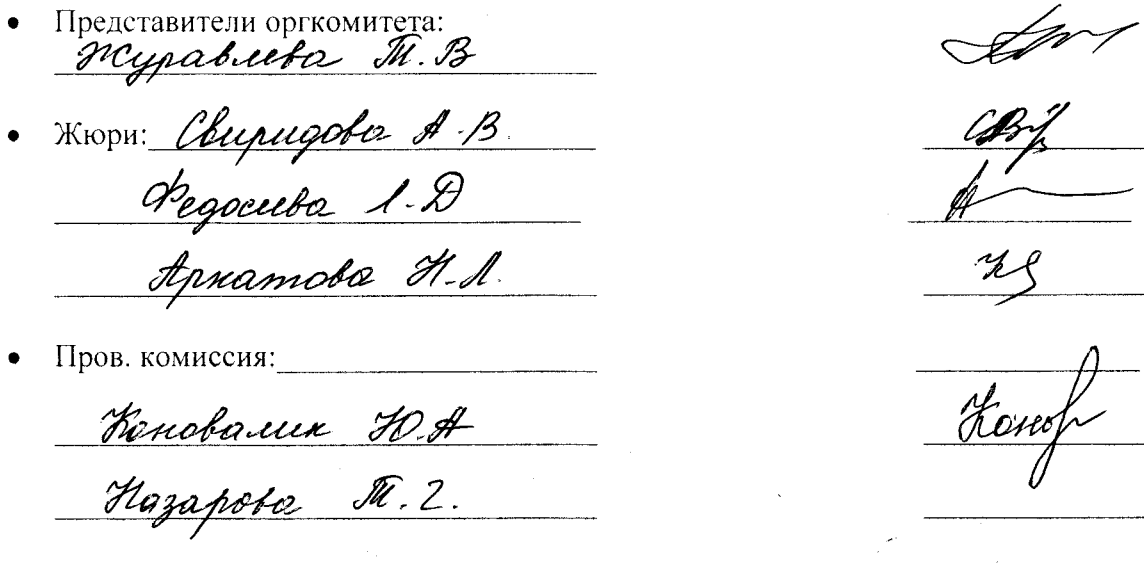 • Представители оргкомитета:
Журавлева Т. В
• Жюри: Свиридова А.В.
Федосеева Л.Д
Аркатова Н.Л.
• Пров. комиссия:
Коновалик Ю.А
Назарова Т.Г.